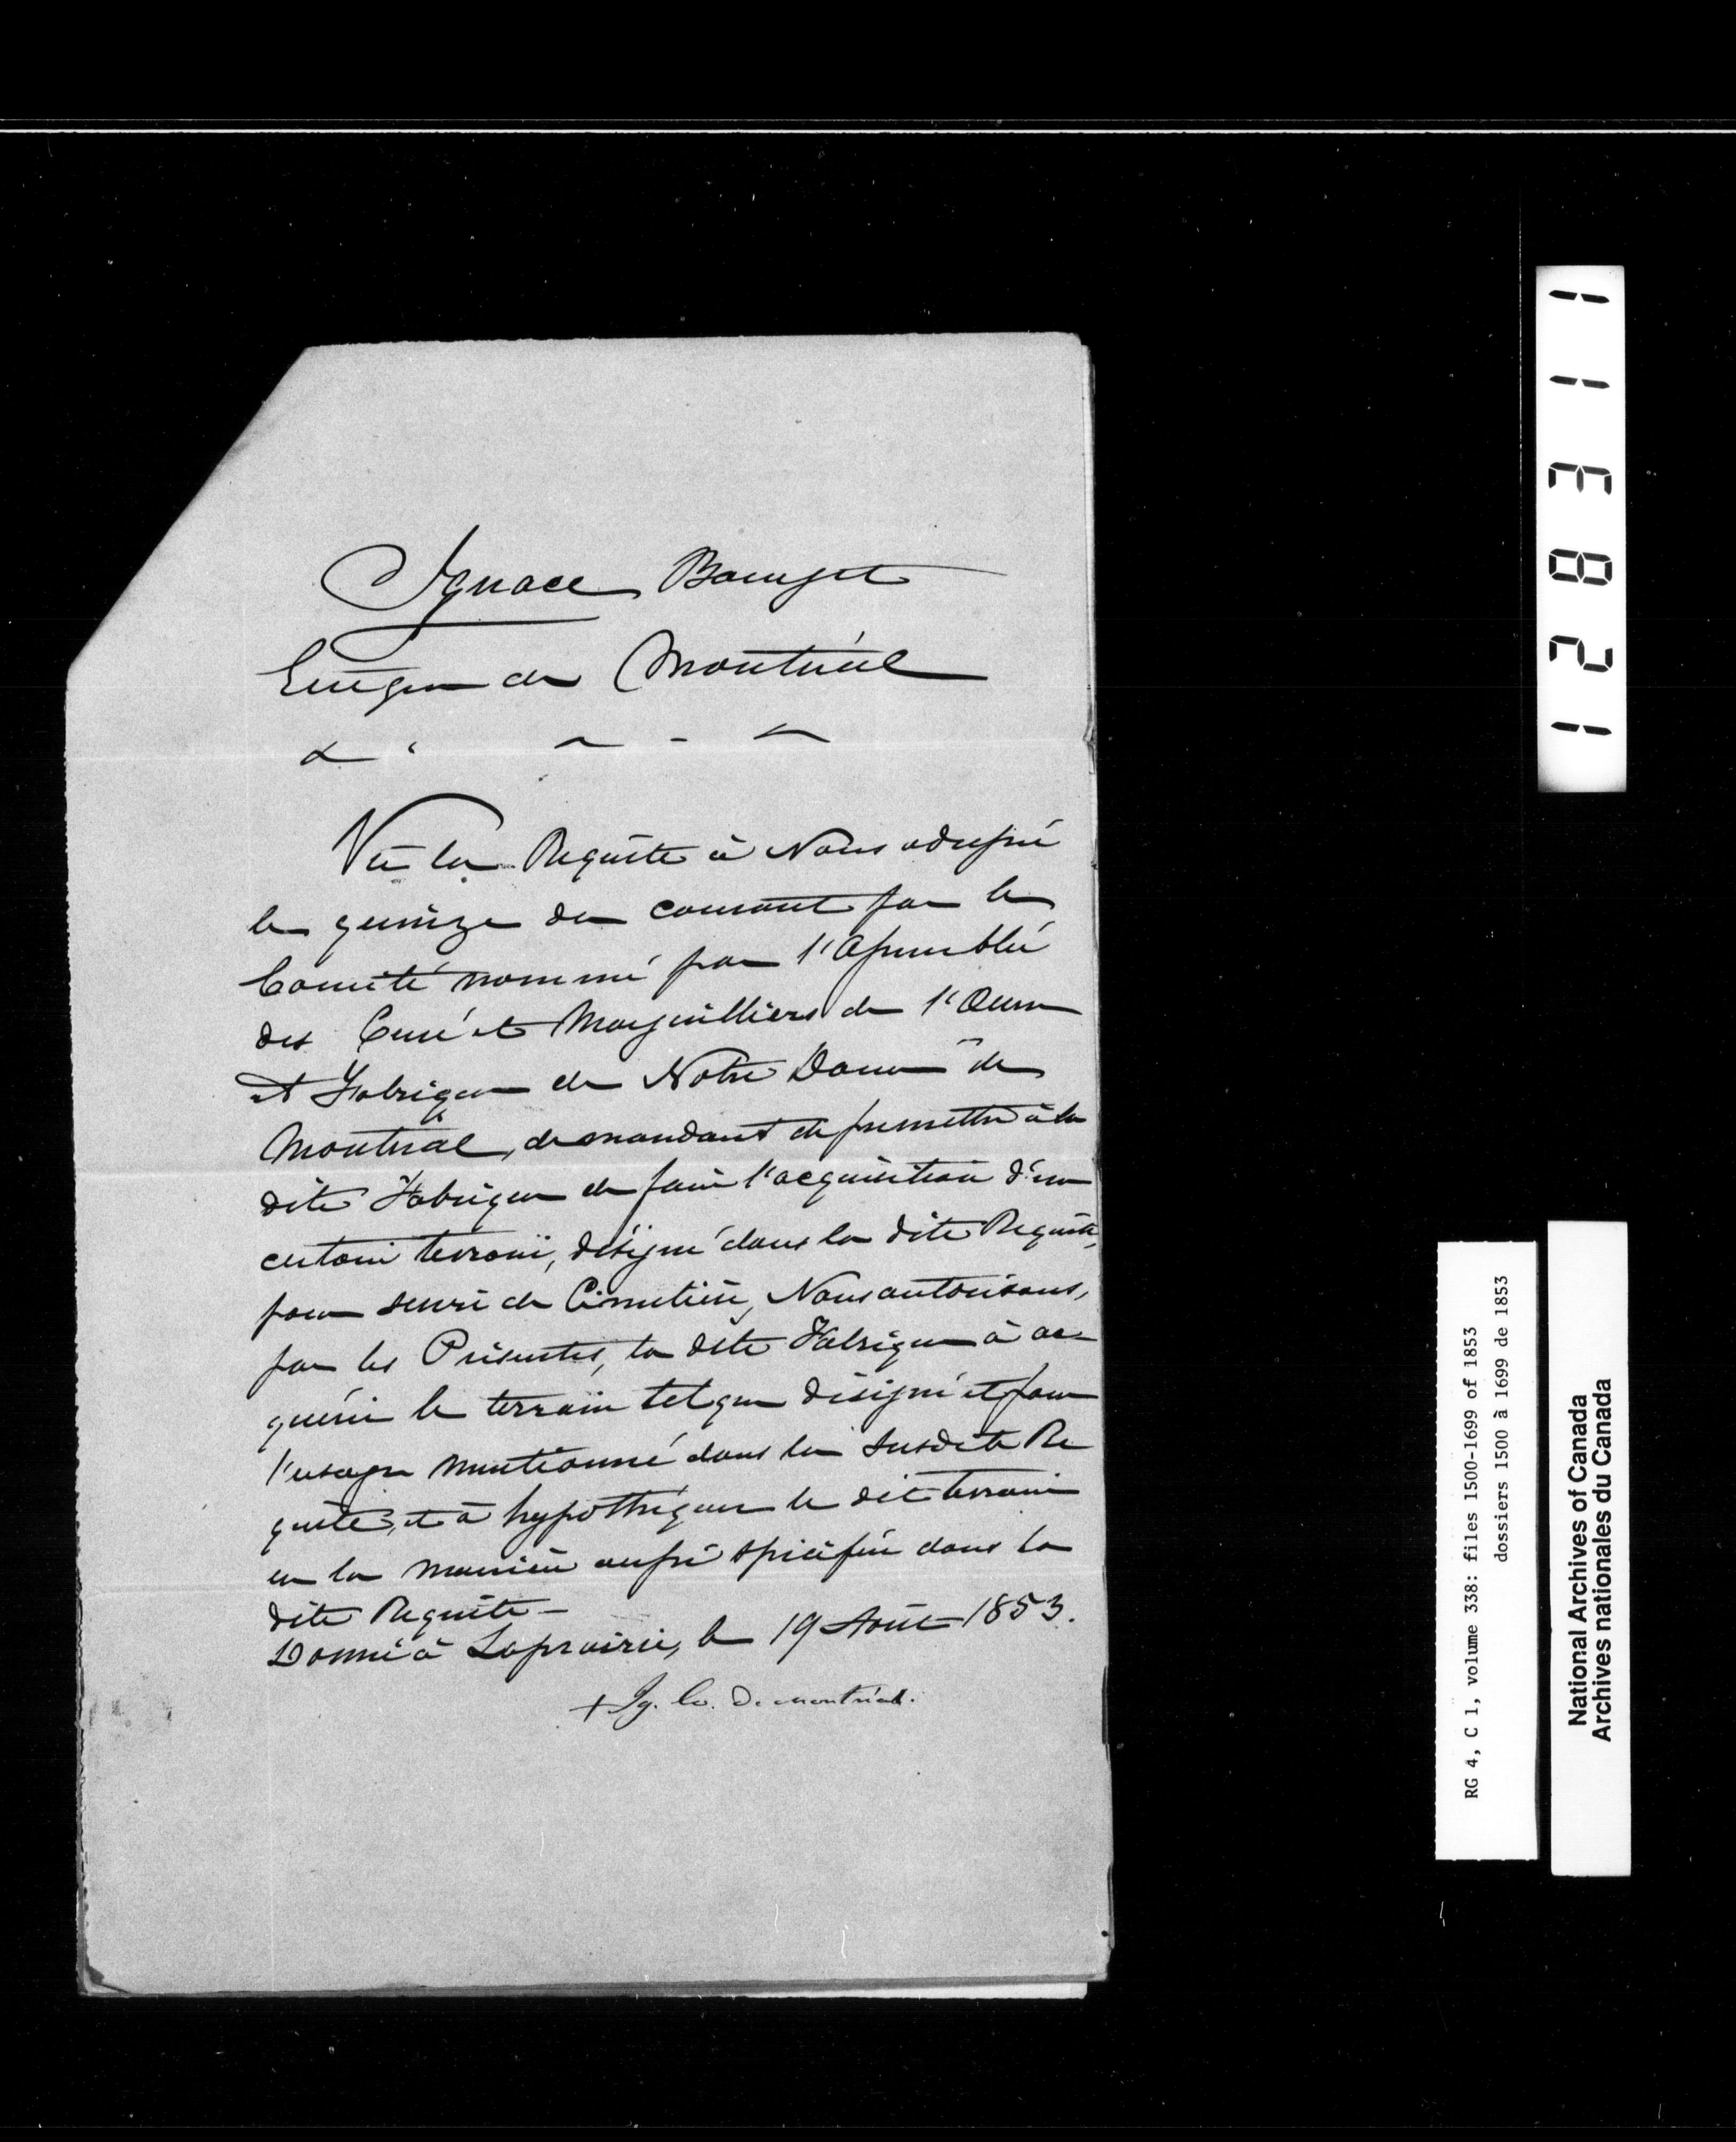 Ignace Bourget
Evêque de Montréal
&c
Vu la Requête à Nous adressée
le quinze du courant par le
Comité nommé par l'Assemblée
des Curé et Marguilliers de l'Œuvre
et Fabrique de Notre Dame de
Montréal, demandant de permettre à la
dite Fabrique de faire l'acquisition d'un
certain terrain, désigné dans la dite Requête,
pour servir de Cimetière, Nous autorisons,
par les Présentes, la dite Fabrique à ac-
quérir le terrain tel que désigné et pour
l'usage mentionné dans la susdite Re
quête, et à hypothéquer le dit terrain
en la manière aussi spécifiée dans la
dite Requête —
Donné à Laprairie, le 19 Août 1853.
+ Ig. Ev. de Montréal.
128311
RG 4, C 1, volume 338: files 1500-1699 of 1853
dossiers 1500 à 1699 de 1853
National Archives of Canada
Archives nationales du Canada